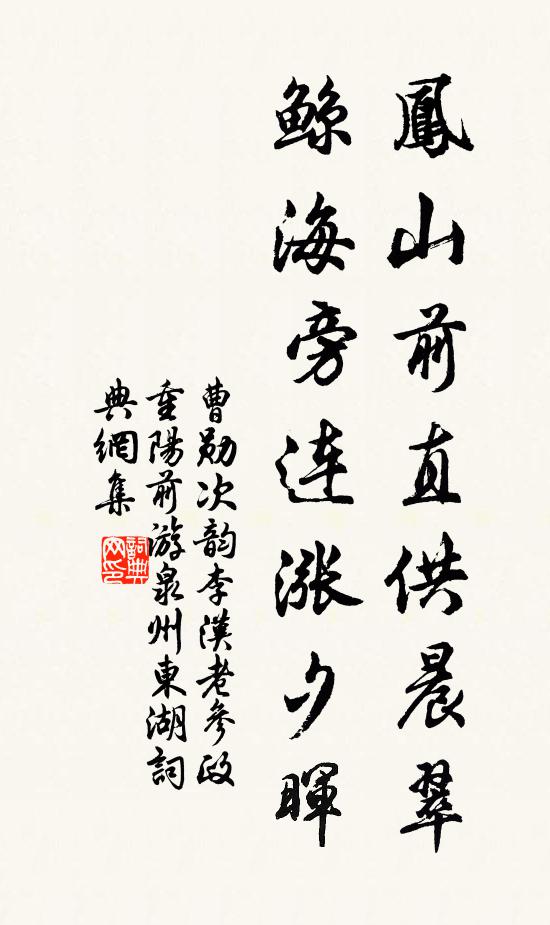 鳳山前直供晨翠
鲸海旁連漲夕暉
曹勛次韵李漢老參政
重陽前游泉州東湖詞
典網集
詞典网印